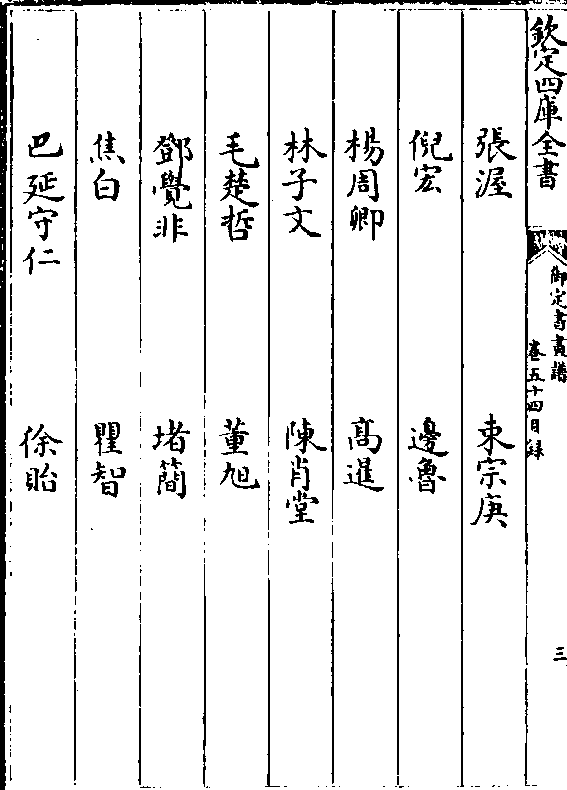 欽定四庫全書
御定書畫譜
卷五十四目錄
三
張渥　束宗庚
倪宏　邊魯
楊周卿　高暹
林子文　陳肖堂
毛楚哲　董旭
鄧覺非　堵簡
焦白　瞿智
巴延守仁　徐貽